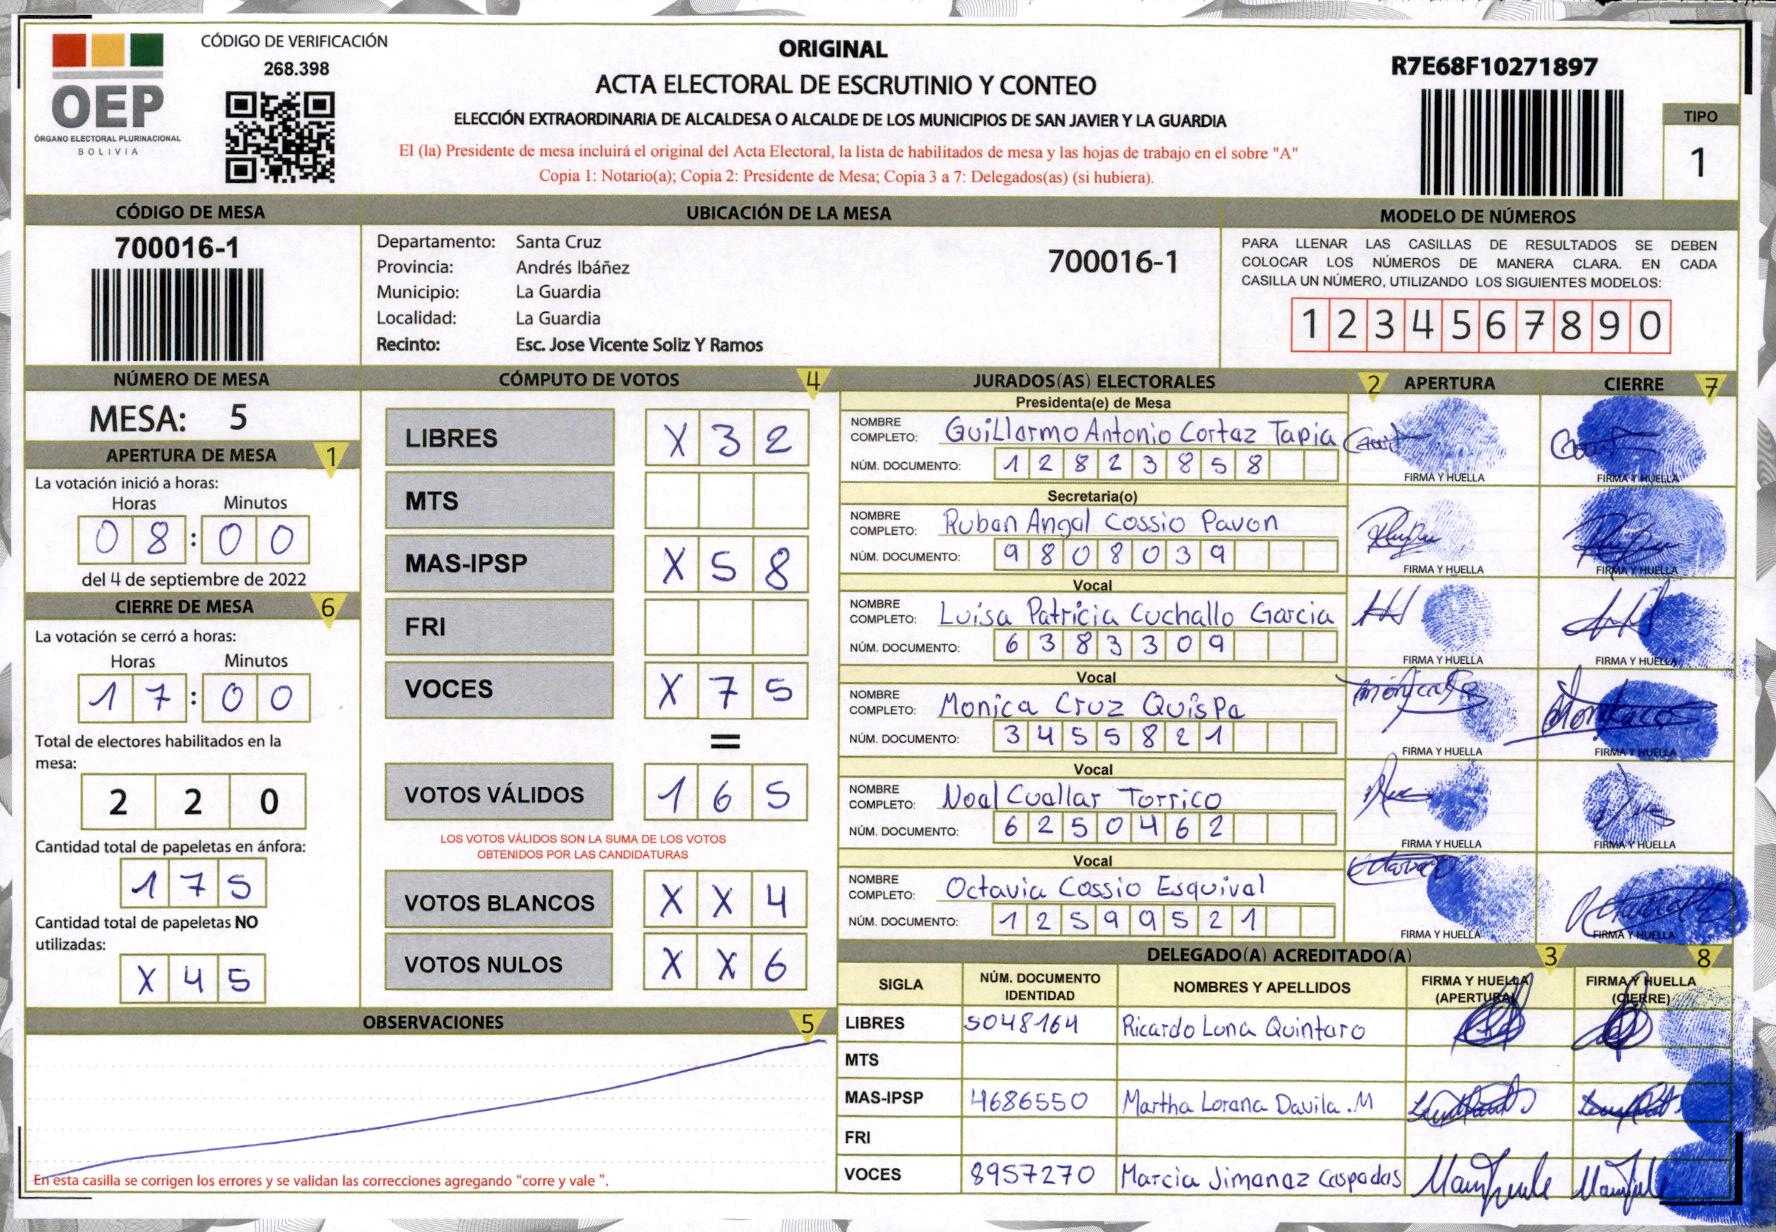 CÓDIGO DE VERIFICACIÓN
268.398
OEP
ÓRGANO ELECTORAL PLURINACIONAL
BOLIVIA
ORIGINAL
ACTA ELECTORAL DE ESCRUTINIO Y CONTEO
ELECCIÓN EXTRAORDINARIA DE ALCALDESA O ALCALDE DE LOS MUNICIPIOS DE SAN JAVIER Y LA GUARDIA
El (la) Presidente de mesa incluirá el original del Acta Electoral, la lista de habilitados de mesa y las hojas de trabajo en el sobre "A"
Copia 1: Notario(a); Copia 2: Presidente de Mesa; Copia 3 a 7: Delegados(as) (si hubiera).
R7E68F10271897
TIPO
1
CÓDIGO DE MESA
700016-1
UBICACIÓN DE LA MESA
Departamento: Santa Cruz
Provincia: Andrés Ibáñez
Municipio: La Guardia
Localidad: La Guardia
Recinto: Esc. Jose Vicente Soliz Y Ramos
700016-1
MODELO DE NÚMEROS
PARA LLENAR LAS CASILLAS DE RESULTADOS SE DEBEN
COLOCAR LOS NÚMEROS DE MANERA CLARA. EN CADA
CASILLA UN NÚMERO, UTILIZANDO LOS SIGUIENTES MODELOS:
1 2 3 4 5 6 7 8 9 0
NÚMERO DE MESA
MESA: 5
APERTURA DE MESA 1
La votación inició a horas:
Horas Minutos
0 8 : 0 0
del 4 de septiembre de 2022
CIERRE DE MESA 6
La votación se cerró a horas:
Horas Minutos
1 7 : 0 0
Total de electores habilitados en la
mesa:
2 2 0
Cantidad total de papeletas en ánfora:
1 7 5
Cantidad total de papeletas NO
utilizadas:
X 4 5
CÓMPUTO DE VOTOS 4
LIBRES X 3 2
MTS
MAS-IPSP X 5 8
FRI
VOCES X 7 5
=
VOTOS VÁLIDOS 1 6 5
LOS VOTOS VÁLIDOS SON LA SUMA DE LOS VOTOS
OBTENIDOS POR LAS CANDIDATURAS
VOTOS BLANCOS X X 4
VOTOS NULOS X X 6
OBSERVACIONES 5
En esta casilla se corrigen los errores y se validan las correcciones agregando "corre y vale ".
JURADOS(AS) ELECTORALES 2 APERTURA CIERRE 7
Presidenta(e) de Mesa
NOMBRE
COMPLETO: Guillermo Antonio Cortez Tapia
NÚM. DOCUMENTO: 1 2 8 2 3 8 5 8
FIRMA Y HUELLA FIRMA Y HUELLA
Secretaria(o)
NOMBRE
COMPLETO: Ruben Angel Cossio Pavon
NÚM. DOCUMENTO: 9 8 0 8 0 3 9
FIRMA Y HUELLA FIRMA Y HUELLA
Vocal
NOMBRE
COMPLETO: Luisa Patricia Cuchallo Garcia
NÚM. DOCUMENTO: 6 3 8 3 3 0 9
FIRMA Y HUELLA FIRMA Y HUELLA
Vocal
NOMBRE
COMPLETO: Monica Cruz Quispe
NÚM. DOCUMENTO: 3 4 5 5 8 2 1
FIRMA Y HUELLA FIRMA Y HUELLA
Vocal
NOMBRE
COMPLETO: Noel Cuellar Torrico
NÚM. DOCUMENTO: 6 2 5 0 4 6 2
FIRMA Y HUELLA FIRMA Y HUELLA
Vocal
NOMBRE
COMPLETO: Octavia Cossio Esquivel
NÚM. DOCUMENTO: 1 2 5 9 9 5 2 1
FIRMA Y HUELLA FIRMA Y HUELLA
DELEGADO(A) ACREDITADO(A) 3 8
SIGLA
NÚM. DOCUMENTO
IDENTIDAD
NOMBRES Y APELLIDOS
FIRMA Y HUELLA
(APERTURA)
FIRMA Y HUELLA
(CIERRE)
LIBRES 5048164 Ricardo Luna Quintero
MTS
MAS-IPSP 4686550 Martha Lorena Davila .M
FRI
VOCES 8957270 Marcia Jimenez Cespedes